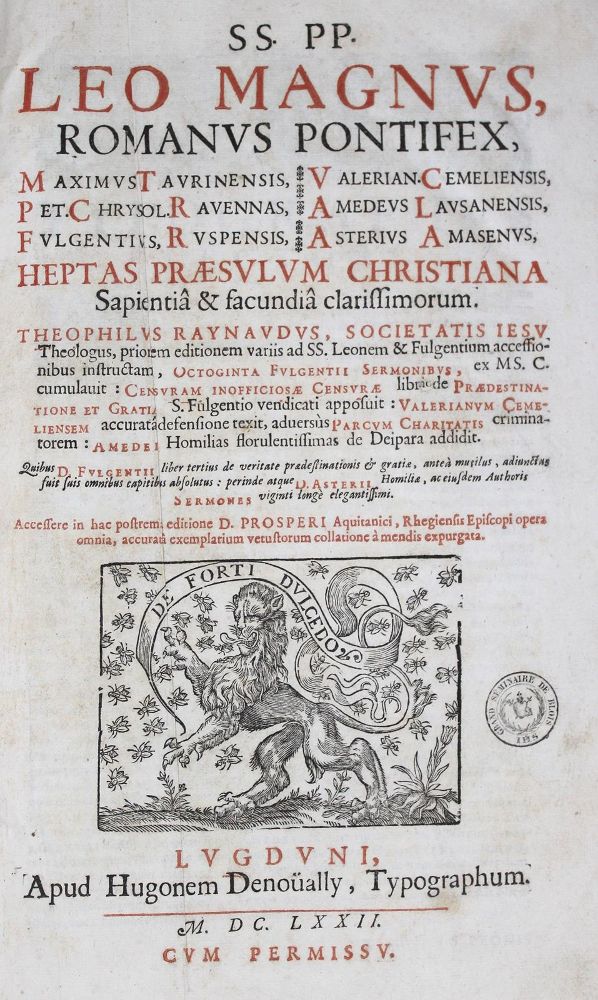 SS. PP.
LEO MAGNVS,
ROMANVS PONTIFEX,
MAXIMVS TAVRINENSIS, VALERIAN. CEMELIENSIS,
PET. CHRYSOL. RAVENNAS, AMEDEVS LAVSANENSIS,
FVLGENTIVS, RVSPENSIS, ASTERIVS AMASENVS,
HEPTAS PRÆSVLVM CHRISTIANA
Sapientiâ & facundiâ clarissimorum.
THEOPHILVS RAYNAVDVS, SOCIETATIS IESV
Theologus, priorem editionem variis ad SS. Leonem & Fulgentium accessio-
nibus instructam, OCTOGINTA FVLGENTII SERMONIBVS, ex MS. C.
cumulauit: CENSVRAM INOFFICIOSÆ CENSVRÆ libri de PRÆDESTINA-
TIONE ET GRATIA S. Fulgentio vendicati apposuit: VALERIANVM CEME-
LIENSEM accuratâ defensione texit, aduersùs PARCVM CHARITATIS crimina-
torem: AMEDEI Homilias florulentissimas de Deipara addidit.
Quibus D. FVLGENTII liber tertius de veritate prædestinationis & gratiæ, anteà mutilus, adiunctus
fuit suis omnibus capitibus absolutus: perinde atque D. ASTERII Homiliæ, ac eiusdem Authoris
SERMONES viginti longè elegantissimi.
Accessere in hac postrema editione D. PROSPERI Aquitanici, Rhegiensis Episcopi opera
omnia, accuratâ exemplarium vetustorum collatione à mendis expurgata.
DE FORTI DVLCEDO
GRAND SEMINAIRE DE BLOIS
LVGDVNI,
Apud Hugonem Denoüally, Typographum.
M. DC. LXXII.
CVM PERMISSV.